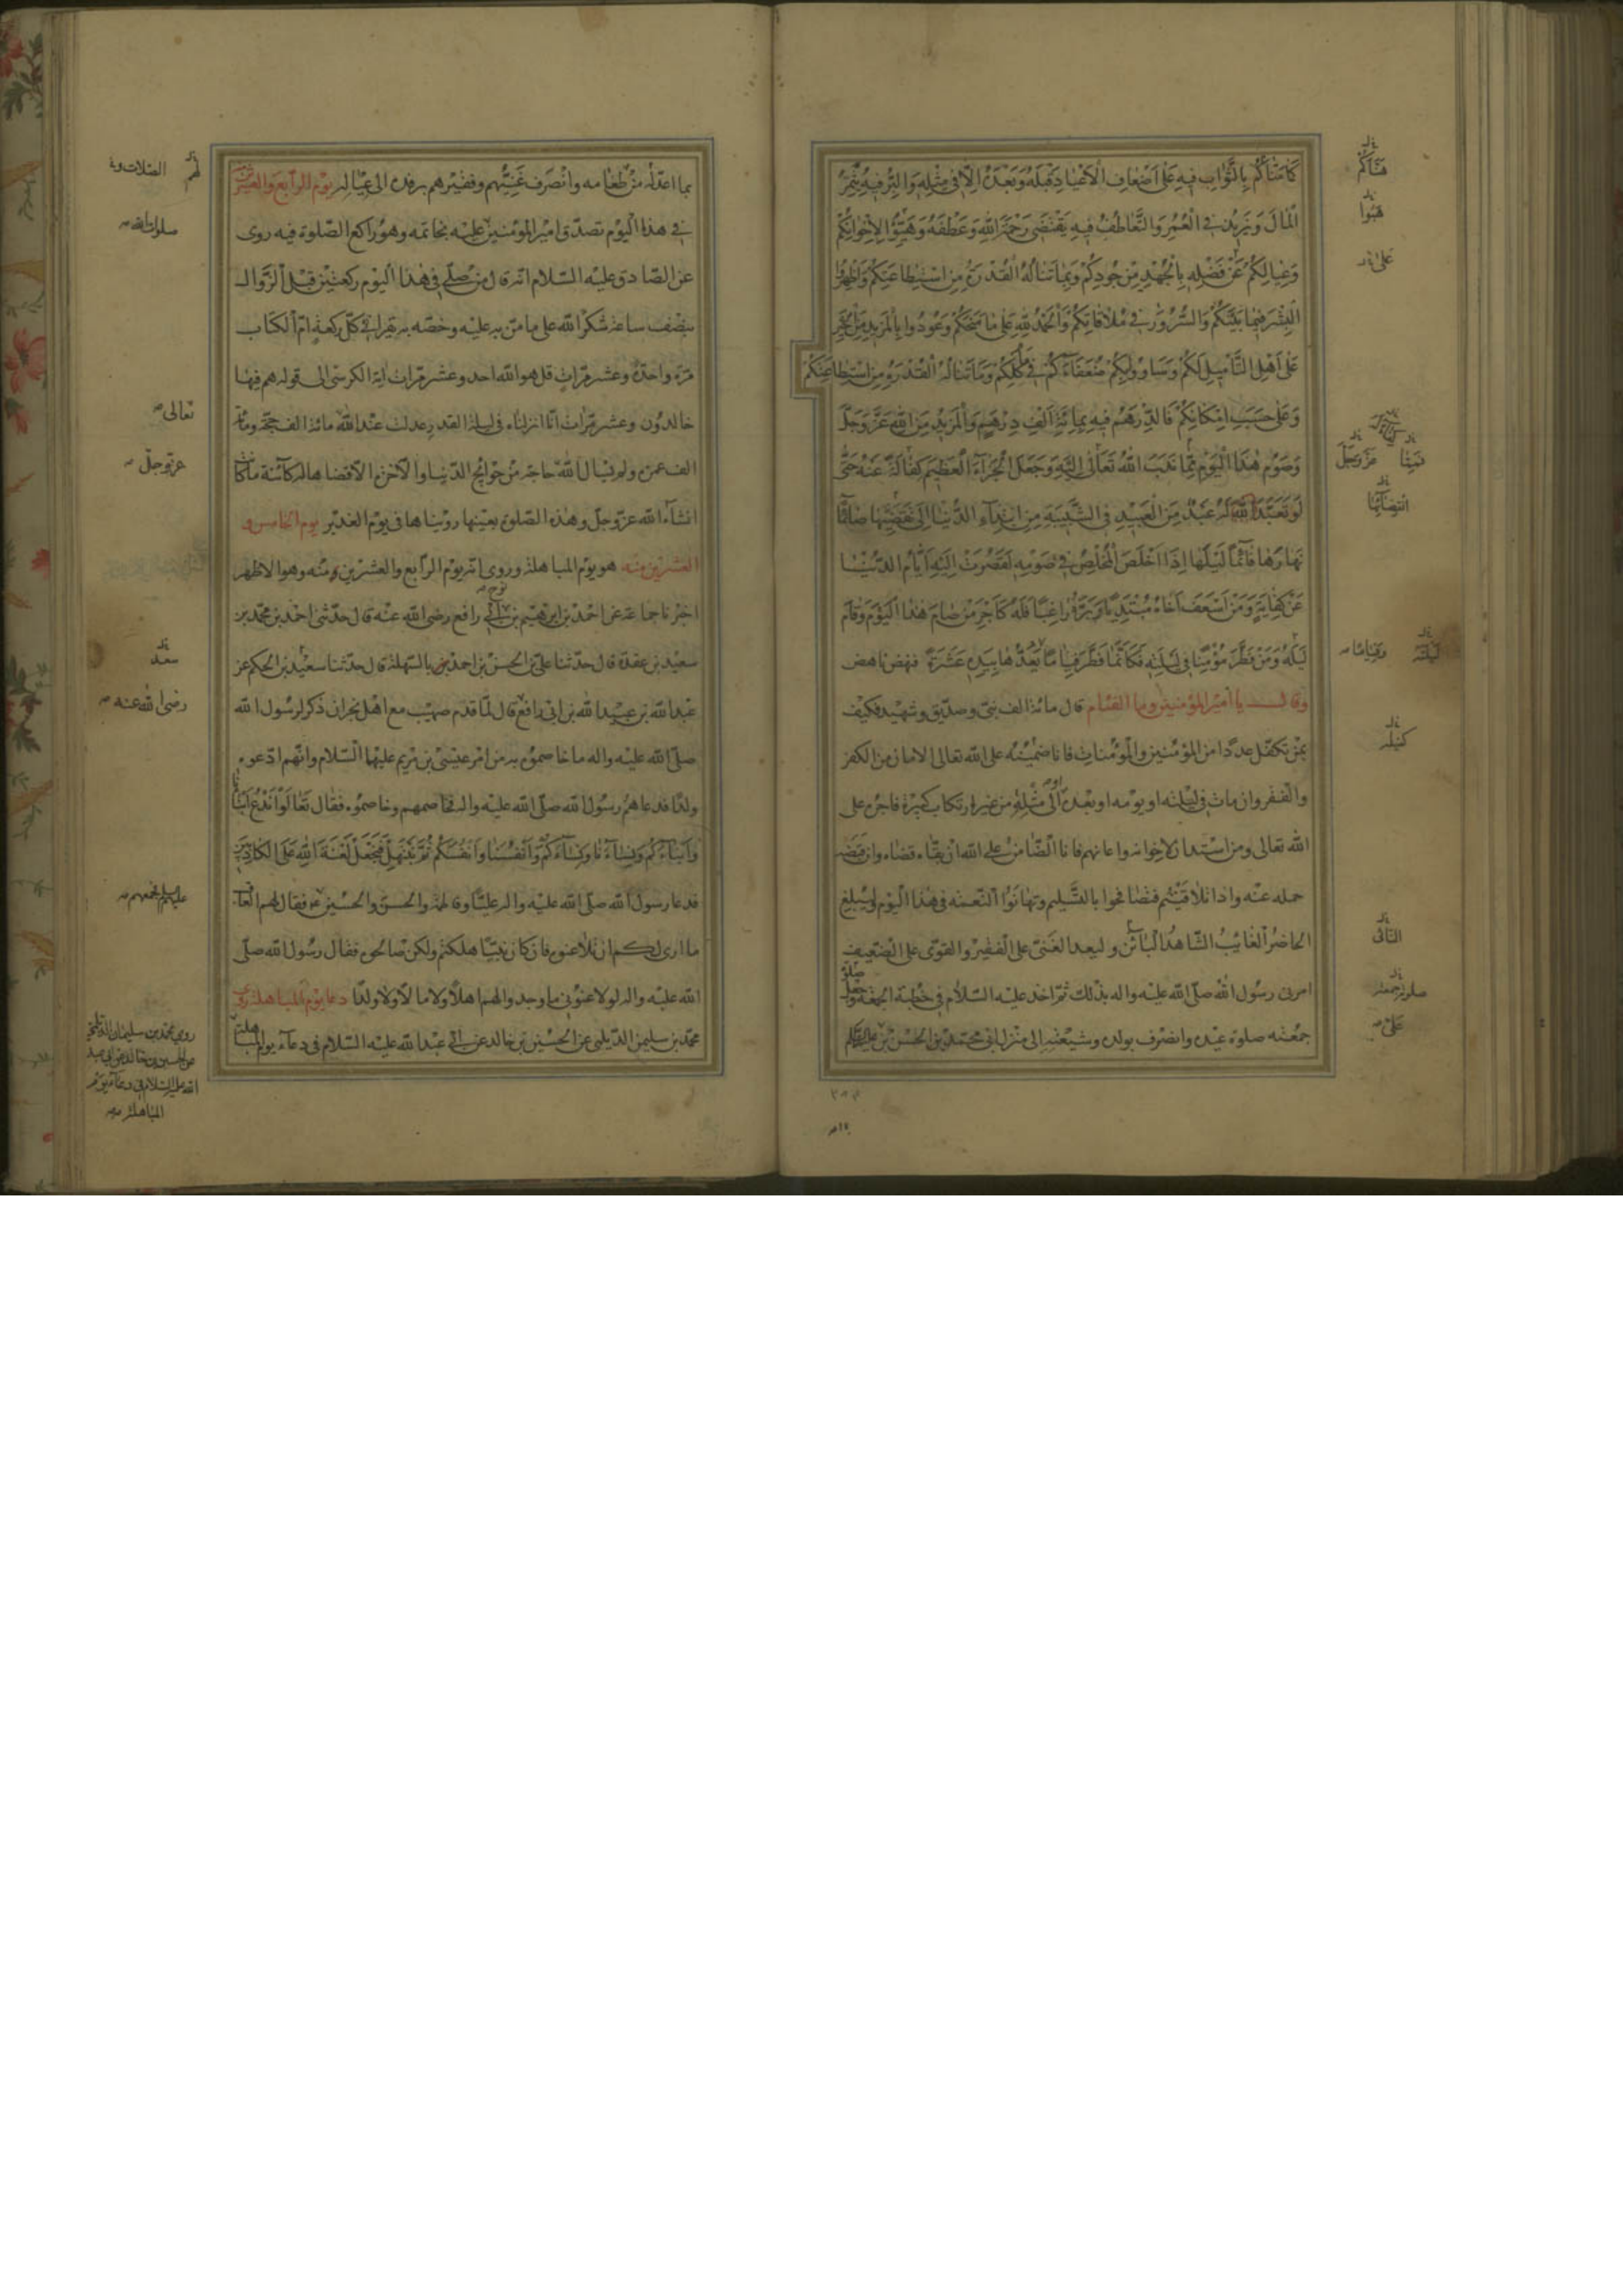 كَمَا مَنَّاكُمْ بِالثَّوَابِ فِيهِ عَلَى أَضْعَافِ الْأَعْيَادِ قَبْلَهُ وَبَعْدَهُ إِلَّا فِي مِثْلِهِ وَالْبِرُّ فِيهِ يُثْمِرُ
الْمَالَ وَيَزِيدُ فِي الْعُمُرِ وَالتَّعَاطُفُ فِيهِ يَقْتَضِي رَحْمَةَ اللَّهِ وَعَطْفَهُ وَهَيِّؤُا لِإِخْوَانِكُمْ
وَعِيَالِكُمْ عَنْ فَضْلِهِ بِالْجُهْدِ مِنْ جُودِكُمْ وَبِمَا تَنَالُهُ الْقُدْرَةُ مِنِ اسْتِطَاعَتِكُمْ وَأَظْهِرُوا
الْبِشْرَ فِيمَا بَيْنَكُمْ وَالسُّرُورَ فِي مُلَاقَاتِكُمْ وَالْحَمْدُ لِلَّهِ عَلَى مَا مَنَحَكُمْ وَعُودُوا بِالْمَزِيدِ مِنَ الْخَيْرِ
عَلَى أَهْلِ التَّأْمِيلِ لَكُمْ وَسَاوُوا بِكُمْ ضُعَفَاءَكُمْ فِي مَأْكَلِكُمْ وَمَا تَنَالُهُ الْقُدْرَةُ مِنِ اسْتِطَاعَتِكُمْ
وَعَلَى حَسَبِ إِمْكَانِكُمْ فَالدِّرْهَمُ فِيهِ بِمِائَةِ أَلْفِ دِرْهَمٍ وَالْمَزِيدُ مِنَ اللَّهِ عَزَّ وَجَلَّ
وَصَوْمُ هَذَا الْيَوْمِ مِمَّا نَدَبَ اللَّهُ تَعَالَى إِلَيْهِ وَجَعَلَ الْجَزَاءَ الْعَظِيمَ كَفَالَةً عَنْهُ حَتَّى
لَوْ تَعَبَّدَ لَهُ عَبْدٌ مِنَ الْعَبِيدِ فِي الشَّبِيبَةِ مِنِ ابْتِدَاءِ الدُّنْيَا إِلَى تَقَضِّيهَا صَائِمًا
نَهَارَهَا قَائِمًا لَيْلَهَا إِذَا أَخْلَصَ الْمُخْلِصُ فِي صَوْمِهِ لَقَصُرَتْ إِلَيْهِ أَيَّامُ الدُّنْيَا
عَنْ كِفَايَةٍ وَمَنْ أَسْعَفَ أَخَاهُ مُبْتَدِيًا وَبَرَّهُ رَاغِبًا فَلَهُ كَأَجْرِ مَنْ صَامَ هَذَا الْيَوْمَ وَقَامَ
لَيْلَهُ وَمَنْ فَطَّرَ مُؤْمِنًا فِي لَيْلَتِهِ فَكَأَنَّمَا فَطَّرَ فِئَامًا فِئَامًا يَعُدُّهَا بِيَدِهِ عَشَرَةً فنهض ناهض
وقال يا أمير المؤمنين وما الفئام قال مائة الف نبي وصديق وشهيد فكيف
بمن تكفل عددا من المؤمنين والمؤمنات فانا ضمينه على الله تعالى الامان من الكفر
والفقر وان مات في ليلته او يومه او بعده الى مثله من غير ارتكاب كبيرة فاجره على
الله تعالى ومن استدان لاخوانه واعانهم فانا الضامن على الله ان بقاه قضاه وان قبضه
حمله عنه واذا تلاقيتم فتصافحوا بالتسليم وتهانوا النعمة في هذا اليوم وليبلغ
الحاضر الغائب الشاهد البائن وليعد الغني على الفقير والقوي على الضعيف
امرني رسول الله صلى الله عليه واله بذلك ثم اخذ عليه السلام في خطبة الجمعة وجعل
جمعته صلوة عيده وانصرف بولده وشيعته الى منزل ابي محمد بن الحسن بن علي عليهم السلام
بما اعد له من طعامه وانصرف غنيهم وفقيرهم برفده الى عياله يوم الرابع والعشرين
في هذا اليوم تصدق امير المؤمنين عليه بخاتمه وهو راكع الصلوة فيه روى
عن الصادق عليه السلام انه قال من صلى في هذا اليوم ركعتين قبل الزوال
بنصف ساعة شكرا لله على ما من به عليه وخصه به يقرا في كل ركعة ام الكتاب
مرة واحدة وعشر مرات قل هو الله احد وعشر مرات اية الكرسي الى قوله هم فيها
خالدون وعشر مرات انا انزلناه في ليلة القدر عدلت عند الله مائة الف حجة ومائة
الف عمرة ولم يسال الله حاجة من حوائج الدنيا والاخرة الا قضاها له كائنة ما كانت
انشاء الله عز وجل وهذه الصلوة بعينها رويناها في يوم الغدير يوم الخامس و
العشرين منه هو يوم المباهلة وروى انه يوم الرابع والعشرين منه وهو الاظهر
اخبرنا جماعة عن احمد بن ابرهيم بن ابي رافع رضي الله عنه قال حدثني احمد بن محمد بن
سعيد بن عقدة قال حدثنا علي بن الحسن بن احمد بن بالسهلة قال حدثنا سعيد بن الحكم عن
عبد الله بن عبيد الله بن ابي رافع قال لما قدم صهيب مع اهل نجران ذكر لرسول الله
صلى الله عليه واله ما خاصموه به من امر عيسى بن مريم عليهما السلام وانهم ادعوه
ولدا فدعاهم رسول الله صلى الله عليه واله فخاصمهم وخاصموه فقال تَعَالَوْا نَدْعُ أَبْنَاءَنَا
وَأَبْنَاءَكُمْ وَنِسَاءَنَا وَنِسَاءَكُمْ وَأَنْفُسَنَا وَأَنْفُسَكُمْ ثُمَّ نَبْتَهِلْ فَنَجْعَلْ لَعْنَةَ اللَّهِ عَلَى الْكَاذِبِينَ
فدعا رسول الله صلى الله عليه واله عليا وفاطمة والحسن والحسين فقال لهم العاقب
ما ارى لكم ان تلاعنوه فان كان نبيا هلكتم ولكن صالحوه فقال رسول الله صلى
الله عليه واله لو لاعنوني ما وجد والهم اهلا ولا مالا ولا ولدا دعا يوم المباهلة روى
محمد بن سليمن الديلمي عن الحسين بن خالد عن ابي عبد الله عليه السلام في دعاء يوم المباهلة
هنأكم
هبوا
على
عز وجل
انقضائها
ليلته
كفيله
صلوة جمعته
على
لهم
صلوات الله
تعالى
عز وجل
سعد
رضى الله عنه
روى محمد بن سليمان الديلمي
عن الحسين بن خالد عن ابي عبد
الله عليه السلام في دعاء يوم
المباهلة